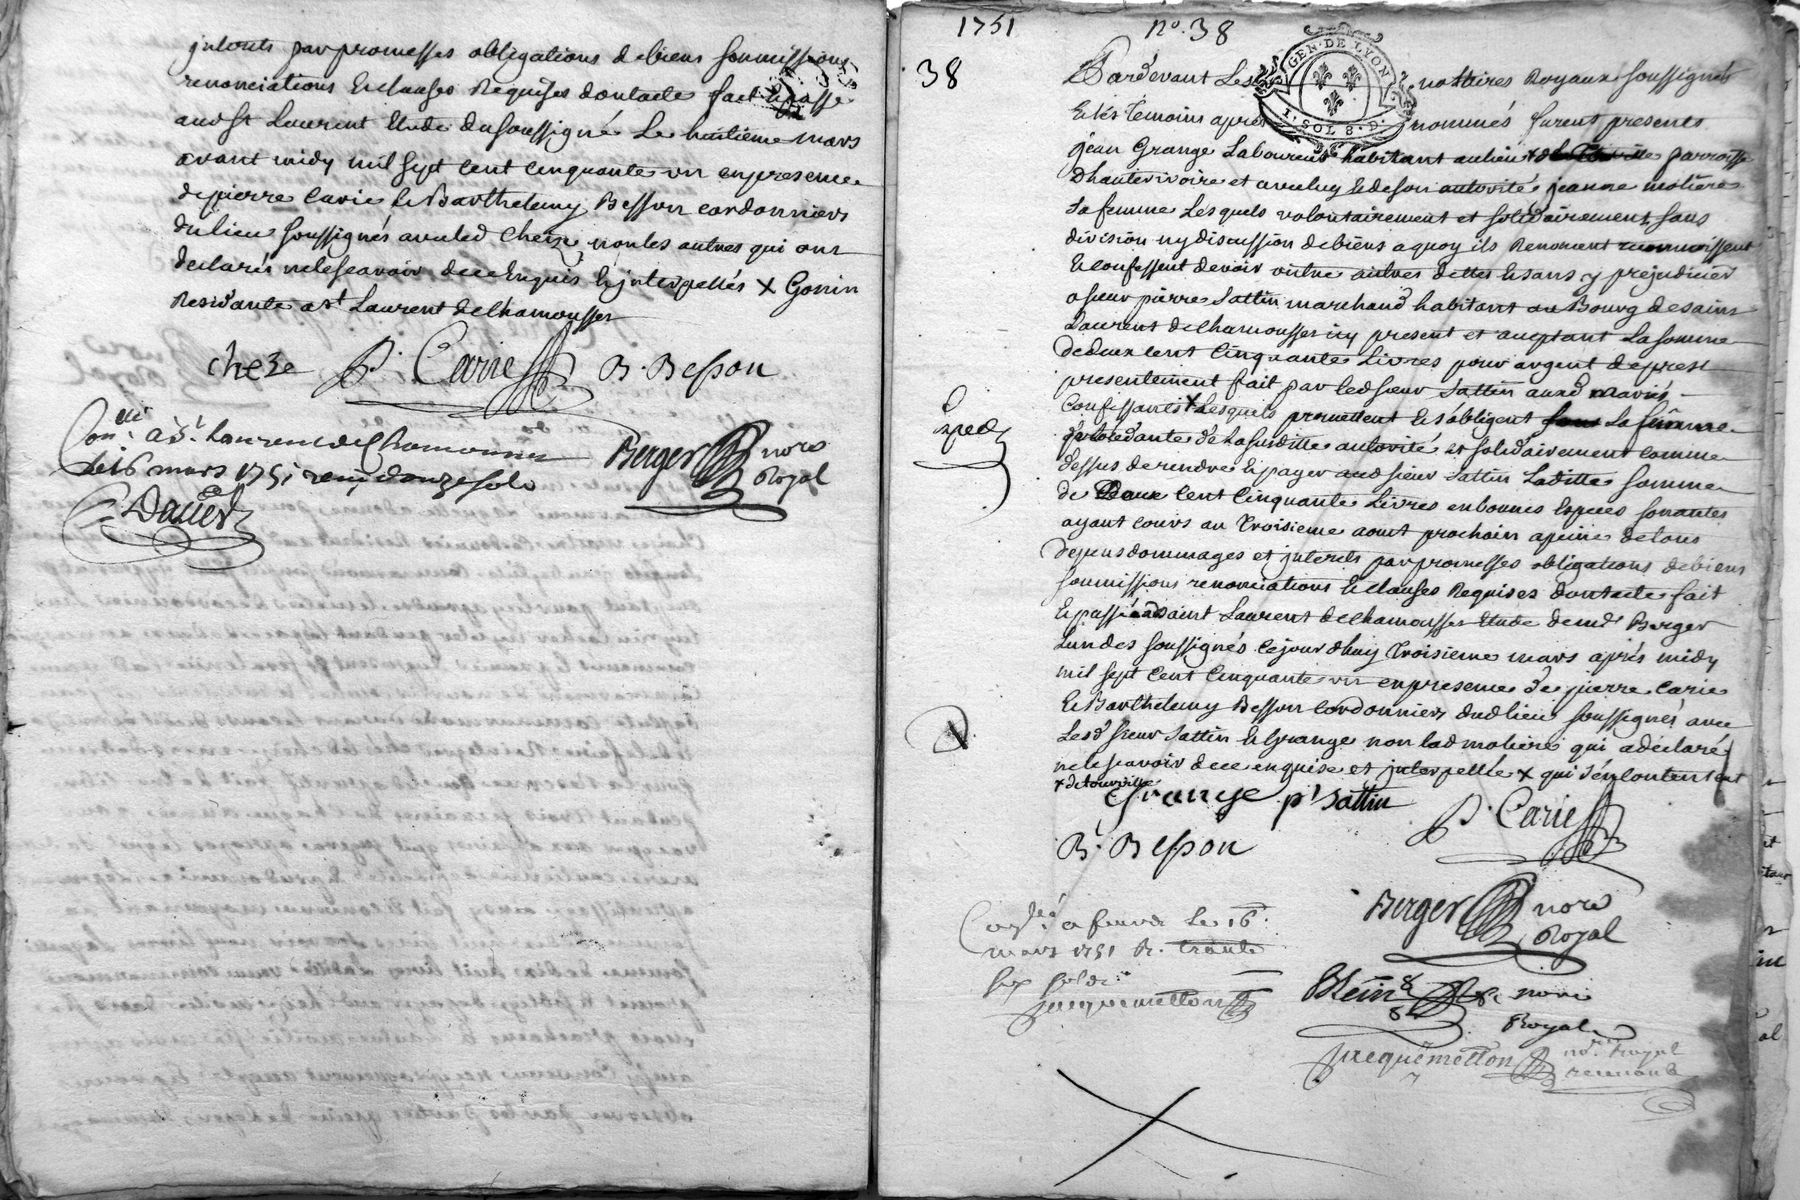 jnterets par promesses obligations de biens soumissions
renonciations Et clauses Requises dont acte fait Et passé
aud st Laurent Etude du soussigné Le huitieme mars
avant midy mil sept cent cinquante un en presence
de pierre Carie Et Barthelemy Besson cordonniers
du lieu soussignés avec led cheze non les autres qui ont
declarés ne le scavoir de ce Enquis Et jnterpellés x Gonin
Residante a st Laurent de Chamousset
cheze P. Carie B. Besson
Conlé a St. Laurent de Chamousset
le 16 mars 1751 reçu douze sols
Berger nore
Royal
1751 no. 38
38
GEN. DE LYON
1. SOL 8. D.
Pardevant Les notaires Royaux soussignés
Et les temoins apres nommés furent presents
jean Grange Laboureur habitant au lieu x parroisse
Dhauterivoire et avec luy Et de son autorité jeanne moliere
sa femme Lesquels volontairement et solidairement sans
division ny discussion de biens a quoy ils Renoncent reconnoissent
Et confessent devoir outre autres dettes Et sans y prejudicier
a sieur pierre Sattin marchand habitant au Bourg de saint
Laurent de Chamousset icy present et acceptant La somme
de deux cent Cinquante Livres pour argent de prest
presentement fait par led sieur Sattin aud mariés
Confessants x Lesquels promettent Et s'obligent La femme
procedante de La susditte autorité et solidairement comme
dessus de rendre Et payer aud sieur Sattin Laditte somme
de Deux cent Cinquante Livres en bonnes Especes sonantes
ayant cours au Troisieme aout prochain a peine de tous
depens dommages et jnterets par promesses obligations de biens
soumissions renonciations Et clauses Requises dont acte fait
Et passé a saint Laurent de Chamousset Etude de md Berger
L'un des soussignés Cejourdhuy Troisieme mars aprés midy
mil sept Cent Cinquante un en presence de pierre Carie
Et Barthelemy Besson Cordonniers dud lieu soussignés avec
Lesd sieur Sattin Et Grange non lad moliere qui a declaré
ne le scavoir de ce enquise et jnterpellée x qui s'en contentent
x de touville
Exped
Grange pr Sattin P. Carie
B. Besson
Conlé a feurs Le 16
mars 1751 R. trante
six sols
jacquemetton
Berger nore
Royal
Blein nore
Royal
jacquemetton nore Royal